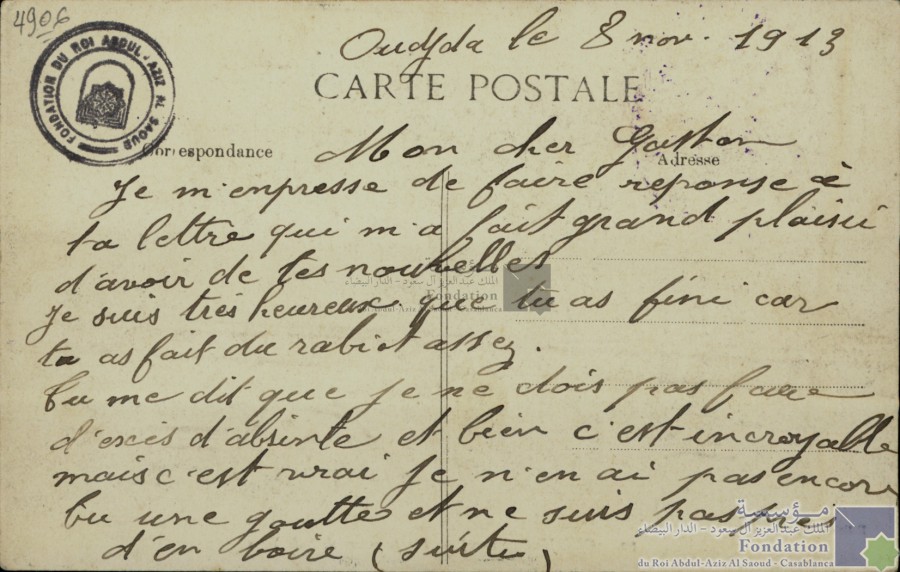 4906
Oudjda le 8 nov. 1913
CARTE POSTALE
FONDATION DU ROI ABDUL-AZIZ AL SAOUD
Correspondance
Adresse
Mon cher Gaston
Je m'enpresse de faire reponse à
ta lettre qui m'a fait grand plaisir
d'avoir de tes nouvelles
Je suis très heureux que tu as fini car
tu as fait du rabiot assez.
Tu me dit que je ne dois pas faire
d'exès d'absinte et bien c'est incroyable
mais c'est vrai je n'en ai pas encore
bu une goutte et ne suis pas
d'en boire (suite)
مؤسسة
الملك عبد العزيز آل سعود - الدار البيضاء
Fondation
du Roi Abdul-Aziz Al Saoud - Casablanca
مؤسسة
الملك عبد العزيز آل سعود - الدار البيضاء
Fondation
du Roi Abdul-Aziz Al Saoud - Casablanca